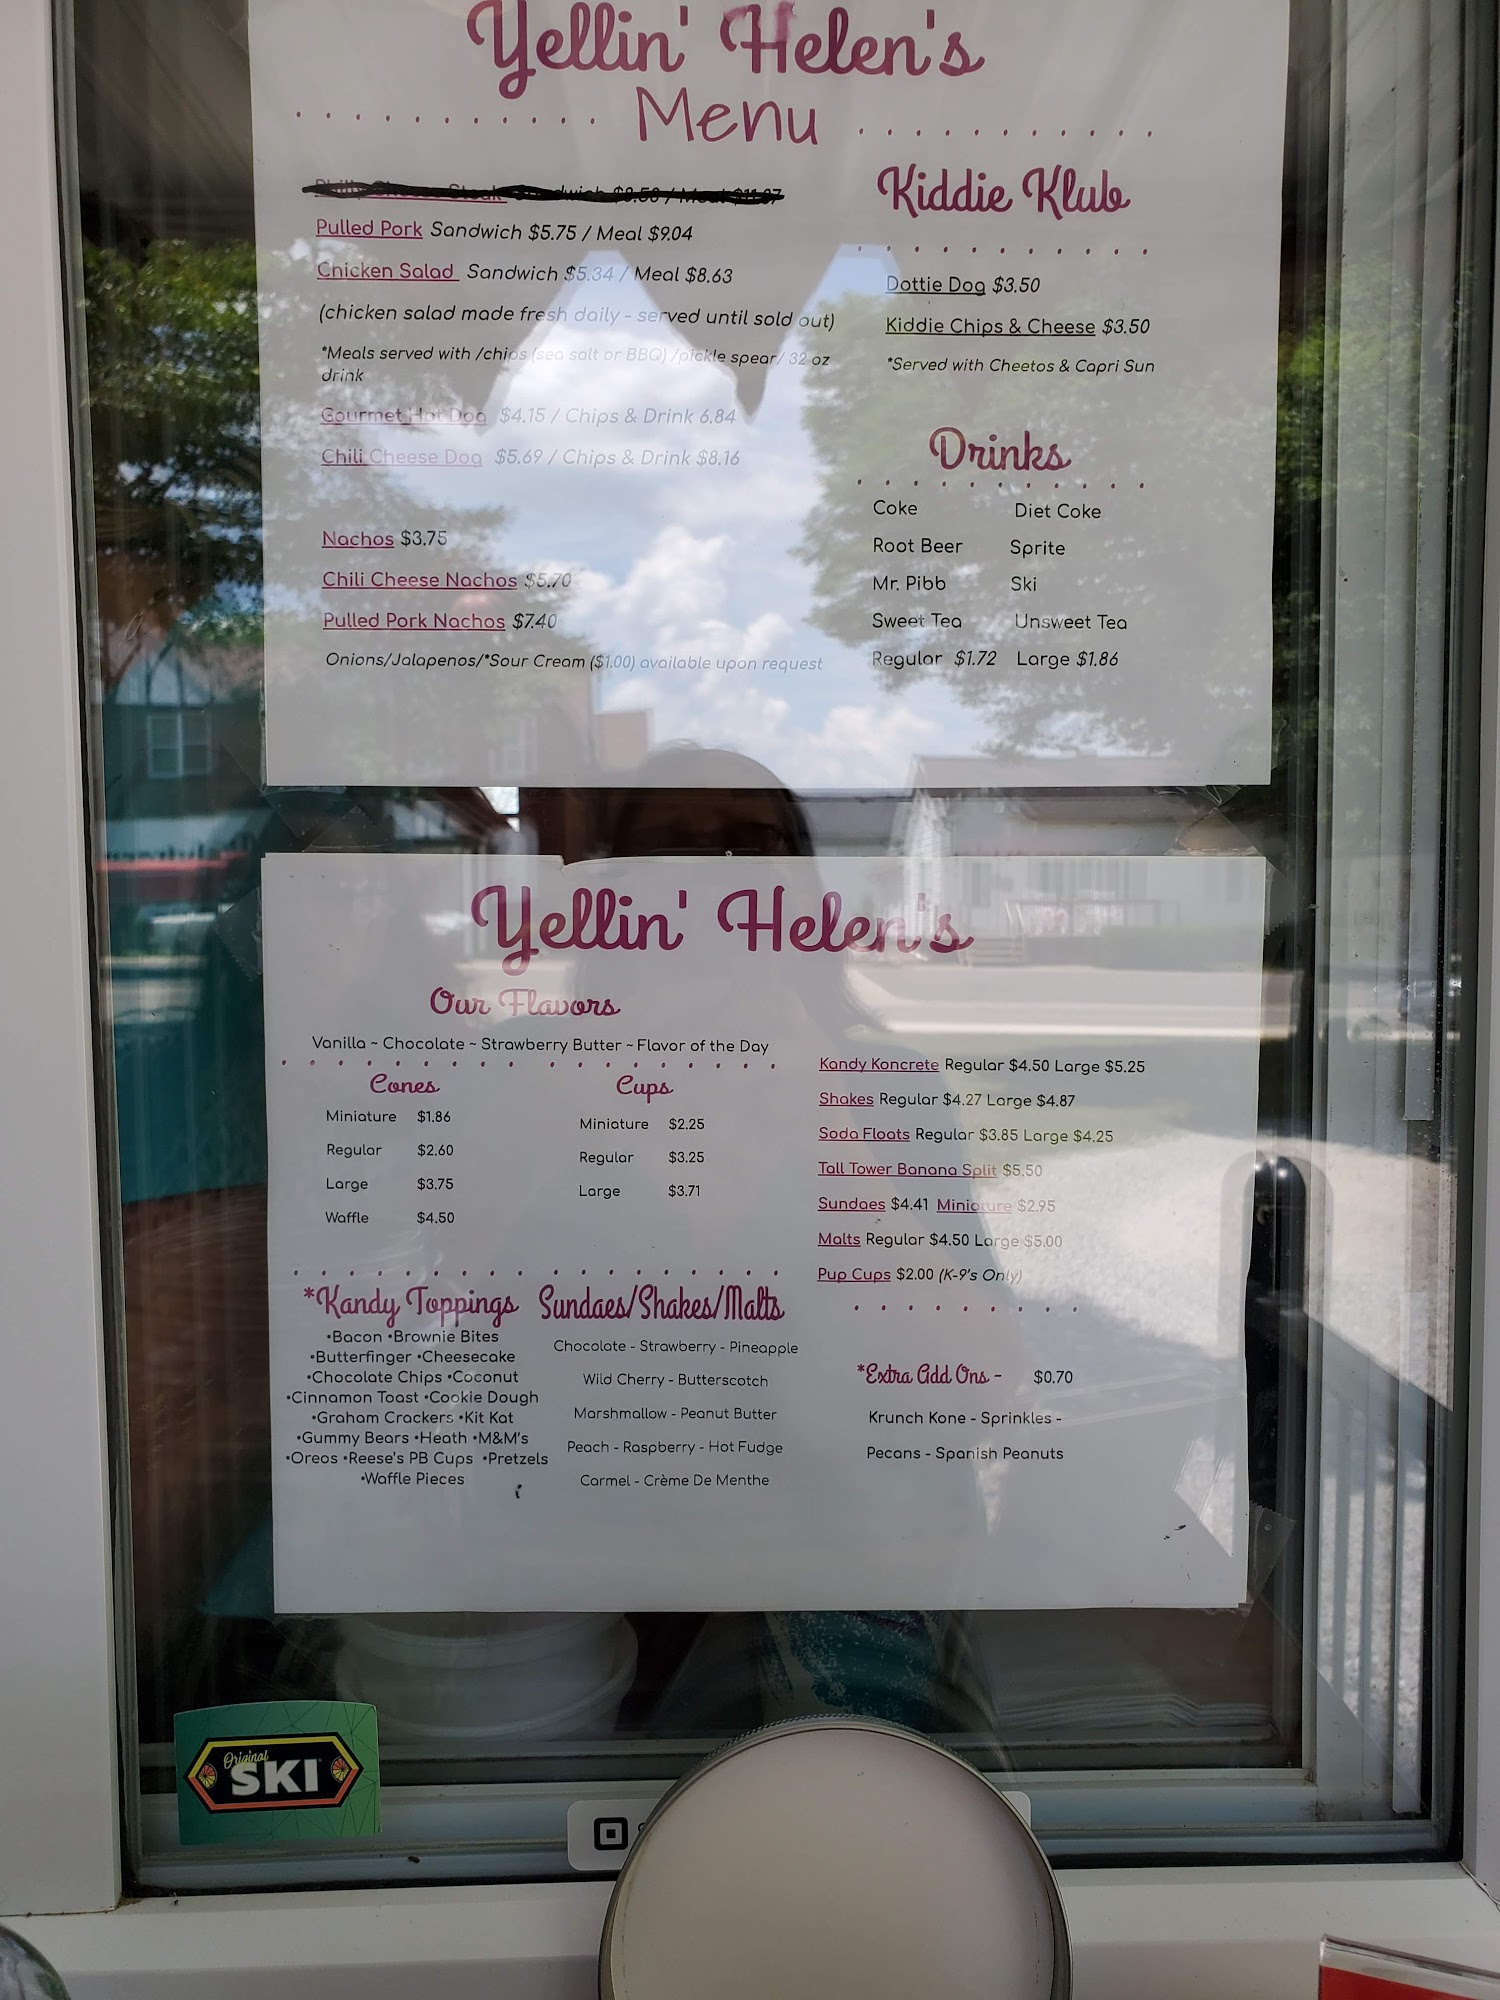 Yellin' Helen's
Menu
Philly Cheese Steak Sandwich $8.58 / Meal $11.87
Pulled Pork Sandwich $5.75 / Meal $9.04
Chicken Salad Sandwich $5.34 / Meal $8.63
(chicken salad made fresh daily - served until sold out)
*Meals served with /chips (sea salt or BBQ) /pickle spear/ 32 oz
drink
Gourmet Hot Dog $4.15 / Chips & Drink 6.84
Chili Cheese Dog $5.69 / Chips & Drink $8.16
Nachos $3.75
Chili Cheese Nachos $5.70
Pulled Pork Nachos $7.40
Onions/Jalapenos/*Sour Cream ($1.00) available upon request
Kiddie Klub
Dottie Dog $3.50
Kiddie Chips & Cheese $3.50
*Served with Cheetos & Capri Sun
Drinks
Coke Diet Coke
Root Beer Sprite
Mr. Pibb Ski
Sweet Tea Unsweet Tea
Regular $1.72 Large $1.86
Yellin' Helen's
Our Flavors
Vanilla ~ Chocolate ~ Strawberry Butter ~ Flavor of the Day
Cones
Miniature $1.86
Regular $2.60
Large $3.75
Waffle $4.50
Cups
Miniature $2.25
Regular $3.25
Large $3.71
Kandy Koncrete Regular $4.50 Large $5.25
Shakes Regular $4.27 Large $4.87
Soda Floats Regular $3.85 Large $4.25
Tall Tower Banana Split $5.50
Sundaes $4.41 Miniature $2.95
Malts Regular $4.50 Large $5.00
Pup Cups $2.00 (K-9's Only)
*Kandy Toppings
•Bacon •Brownie Bites
•Butterfinger •Cheesecake
•Chocolate Chips •Coconut
•Cinnamon Toast •Cookie Dough
•Graham Crackers •Kit Kat
•Gummy Bears •Heath •M&M's
•Oreos •Reese's PB Cups •Pretzels
•Waffle Pieces
Sundaes/Shakes/Malts
Chocolate - Strawberry - Pineapple
Wild Cherry - Butterscotch
Marshmallow - Peanut Butter
Peach - Raspberry - Hot Fudge
Carmel - Crème De Menthe
*Extra Add Ons - $0.70
Krunch Kone - Sprinkles -
Pecans - Spanish Peanuts
Original
SKI